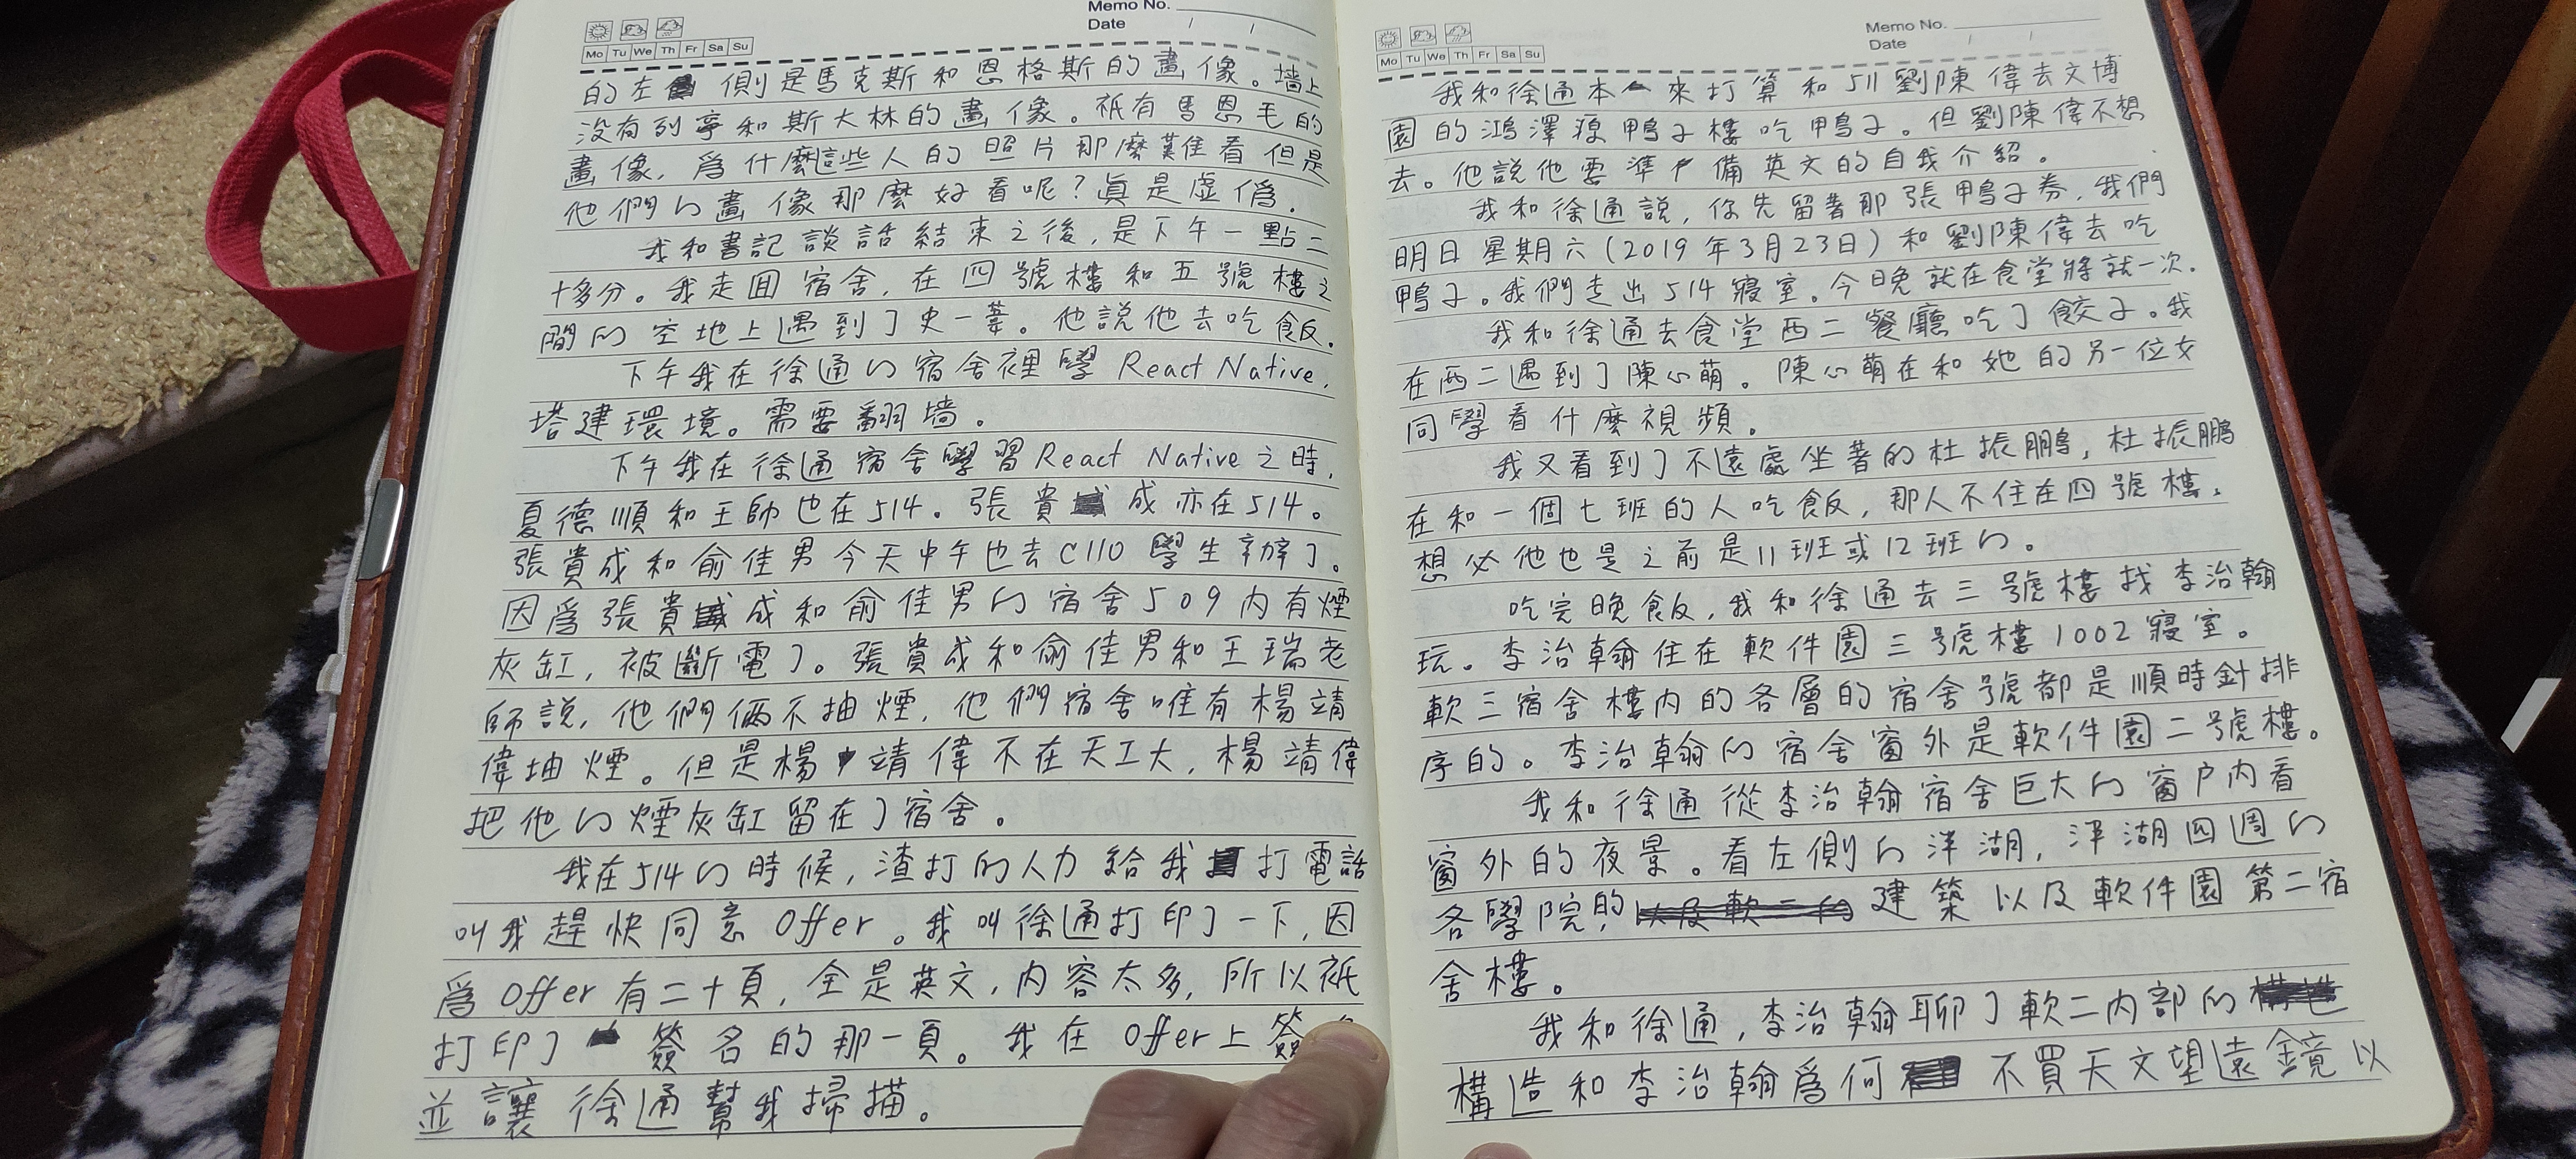 Memo No.
Date / /
Mo Tu We Th Fr Sa Su
的左側則是馬克斯和恩格斯的畫像。墻上
沒有列寧和斯大林的畫像。祇有馬恩毛的
畫像,爲什麼這些人的照片那麼難看但是
他們的畫像那麼好看呢?真是虛僞.
我和書記談話結束之後,是下午一點二
十多分。我走囬宿舍,在四號樓和五號樓之
間的空地上遇到了史一葦。他說他去吃飯.
下午我在徐通的宿舍裡學 React Native,
塔建環境。需要翻墻。
下午我在徐通宿舍學習React Native之時,
夏德順和王帥也在514。張貴成亦在514。
張貴成和俞佳男今天中午也去C110學生辦了。
因爲張貴成和俞佳男的宿舍509內有煙
灰缸,被斷電了。張貴成和俞佳男和王瑞老
師說,他們倆不抽煙,他們宿舍唯有楊靖
偉抽煙。但是楊靖偉不在天工大,楊靖偉
把他的煙灰缸留在了宿舍。
我在514的時候,渣打的人力給我打電話
叫我趕快同意Offer。我叫徐通打印了一下,因
爲Offer有二十頁,全是英文,内容太多,所以祇
打印了簽名的那一頁。我在Offer上簽
並讓徐通幫我掃描。
Memo No.
Date / /
Mo Tu We Th Fr Sa Su
我和徐通本來打算和511劉陳偉去文博
園的鴻澤源鴨子樓吃鴨子。但劉陳偉不想
去。他說他要準備英文的自我介紹。
我和徐通說,你先留著那張鴨子券,我們
明日星期六(2019年3月23日)和劉陳偉去吃
鴨子。我們走出514寢室。今日晚就在食堂將就一次.
我和徐通去食堂西二餐廳吃了餃子。我
在西二遇到了陳心萌。陳心萌在和她的另一位女
同學看什麼視頻。
我又看到了不遠處坐著的杜振鵬,杜振鵬
在和一個七班的人吃飯,那人不住在四號樓,
想必他也是之前是11班或12班的。
吃完晚飯,我和徐通去三號樓找李治翰
玩。李治翰住在軟件園三號樓1002寢室。
軟三宿舍樓内的各層的宿舍號都是順時針排
序的。李治翰的宿舍窗外是軟件園二號樓。
我和徐通從李治翰宿舍巨大的窗户内看
窗外的夜景。看左側的泮湖,泮湖四週的
各學院,的建築以及軟件園第二宿
舍樓。
我和徐通,李治翰聊了軟二内部的
構造和李治翰爲何不買天文望遠鏡以